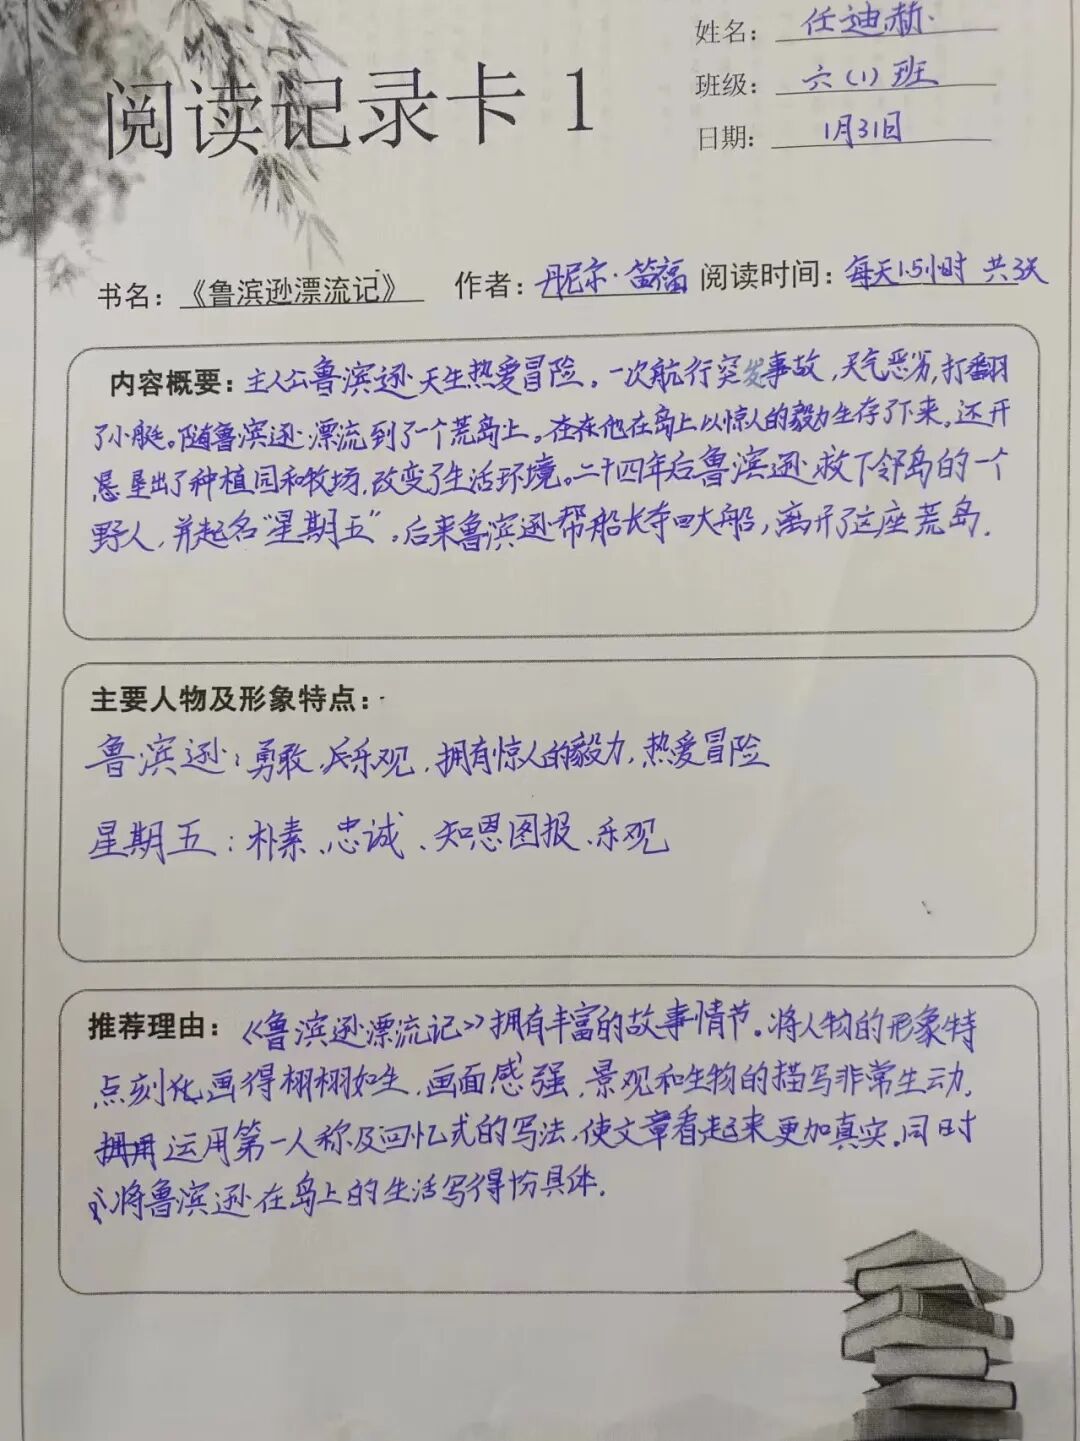 姓名：任迪赫
班级：六(1)班
日期：1月31日
阅读记录卡1
书名：《鲁滨逊漂流记》 作者：丹尼尔·笛福 阅读时间：每天1.5小时 共3天
内容概要：主人公鲁滨逊天生热爱冒险。一次航行突发事故，天气恶劣，打翻
了小艇。随鲁滨逊漂流到了一个荒岛上。在他在岛上以惊人的毅力生存了下来。还开
垦出了种植园和牧场，改变了生活环境。二十四年后鲁滨逊救下邻岛的一个
野人，并起名“星期五”。后来鲁滨逊帮船长夺回大船，离开了这座荒岛.
主要人物及形象特点：
鲁滨逊：勇敢、乐观、拥有惊人的毅力，热爱冒险
星期五：朴素、忠诚、知恩图报、乐观
推荐理由：《鲁滨逊漂流记》拥有丰富的故事情节。将人物的形象特
点刻化画得栩栩如生，画面感强，景观和生物的描写非常生动.
运用第一人称及回忆式的写法，使文章看起来更加真实.同时
将鲁滨逊在岛上的生活写得份具体.